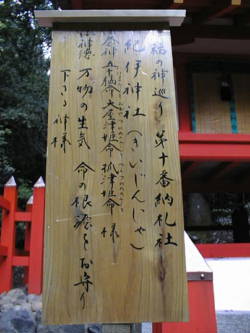 福の神巡り 第十番納札社
紀伊神社(きいじんじゃ)
御祭神 五十猛命 大屋津姫命 抓津姫命 様
御神徳 万物の生気 命の根源をお守り
下さる神様